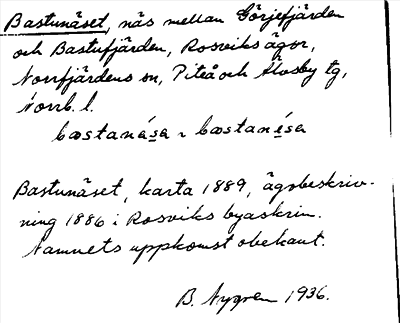 Bastunäset, näs mellan Görjefjärden
och Bastufjärden, Rosviks ägor,
Norrfjärdens sn, Piteå och Älvsby tg,
Norrb. l.
bastanása ~ bastanésa
Bastunäset, karta 1889, ägobeskriv-
ning 1886 i Rosviks byaskrin.
Namnets uppkomst obekant.
B. Nygren 1936.